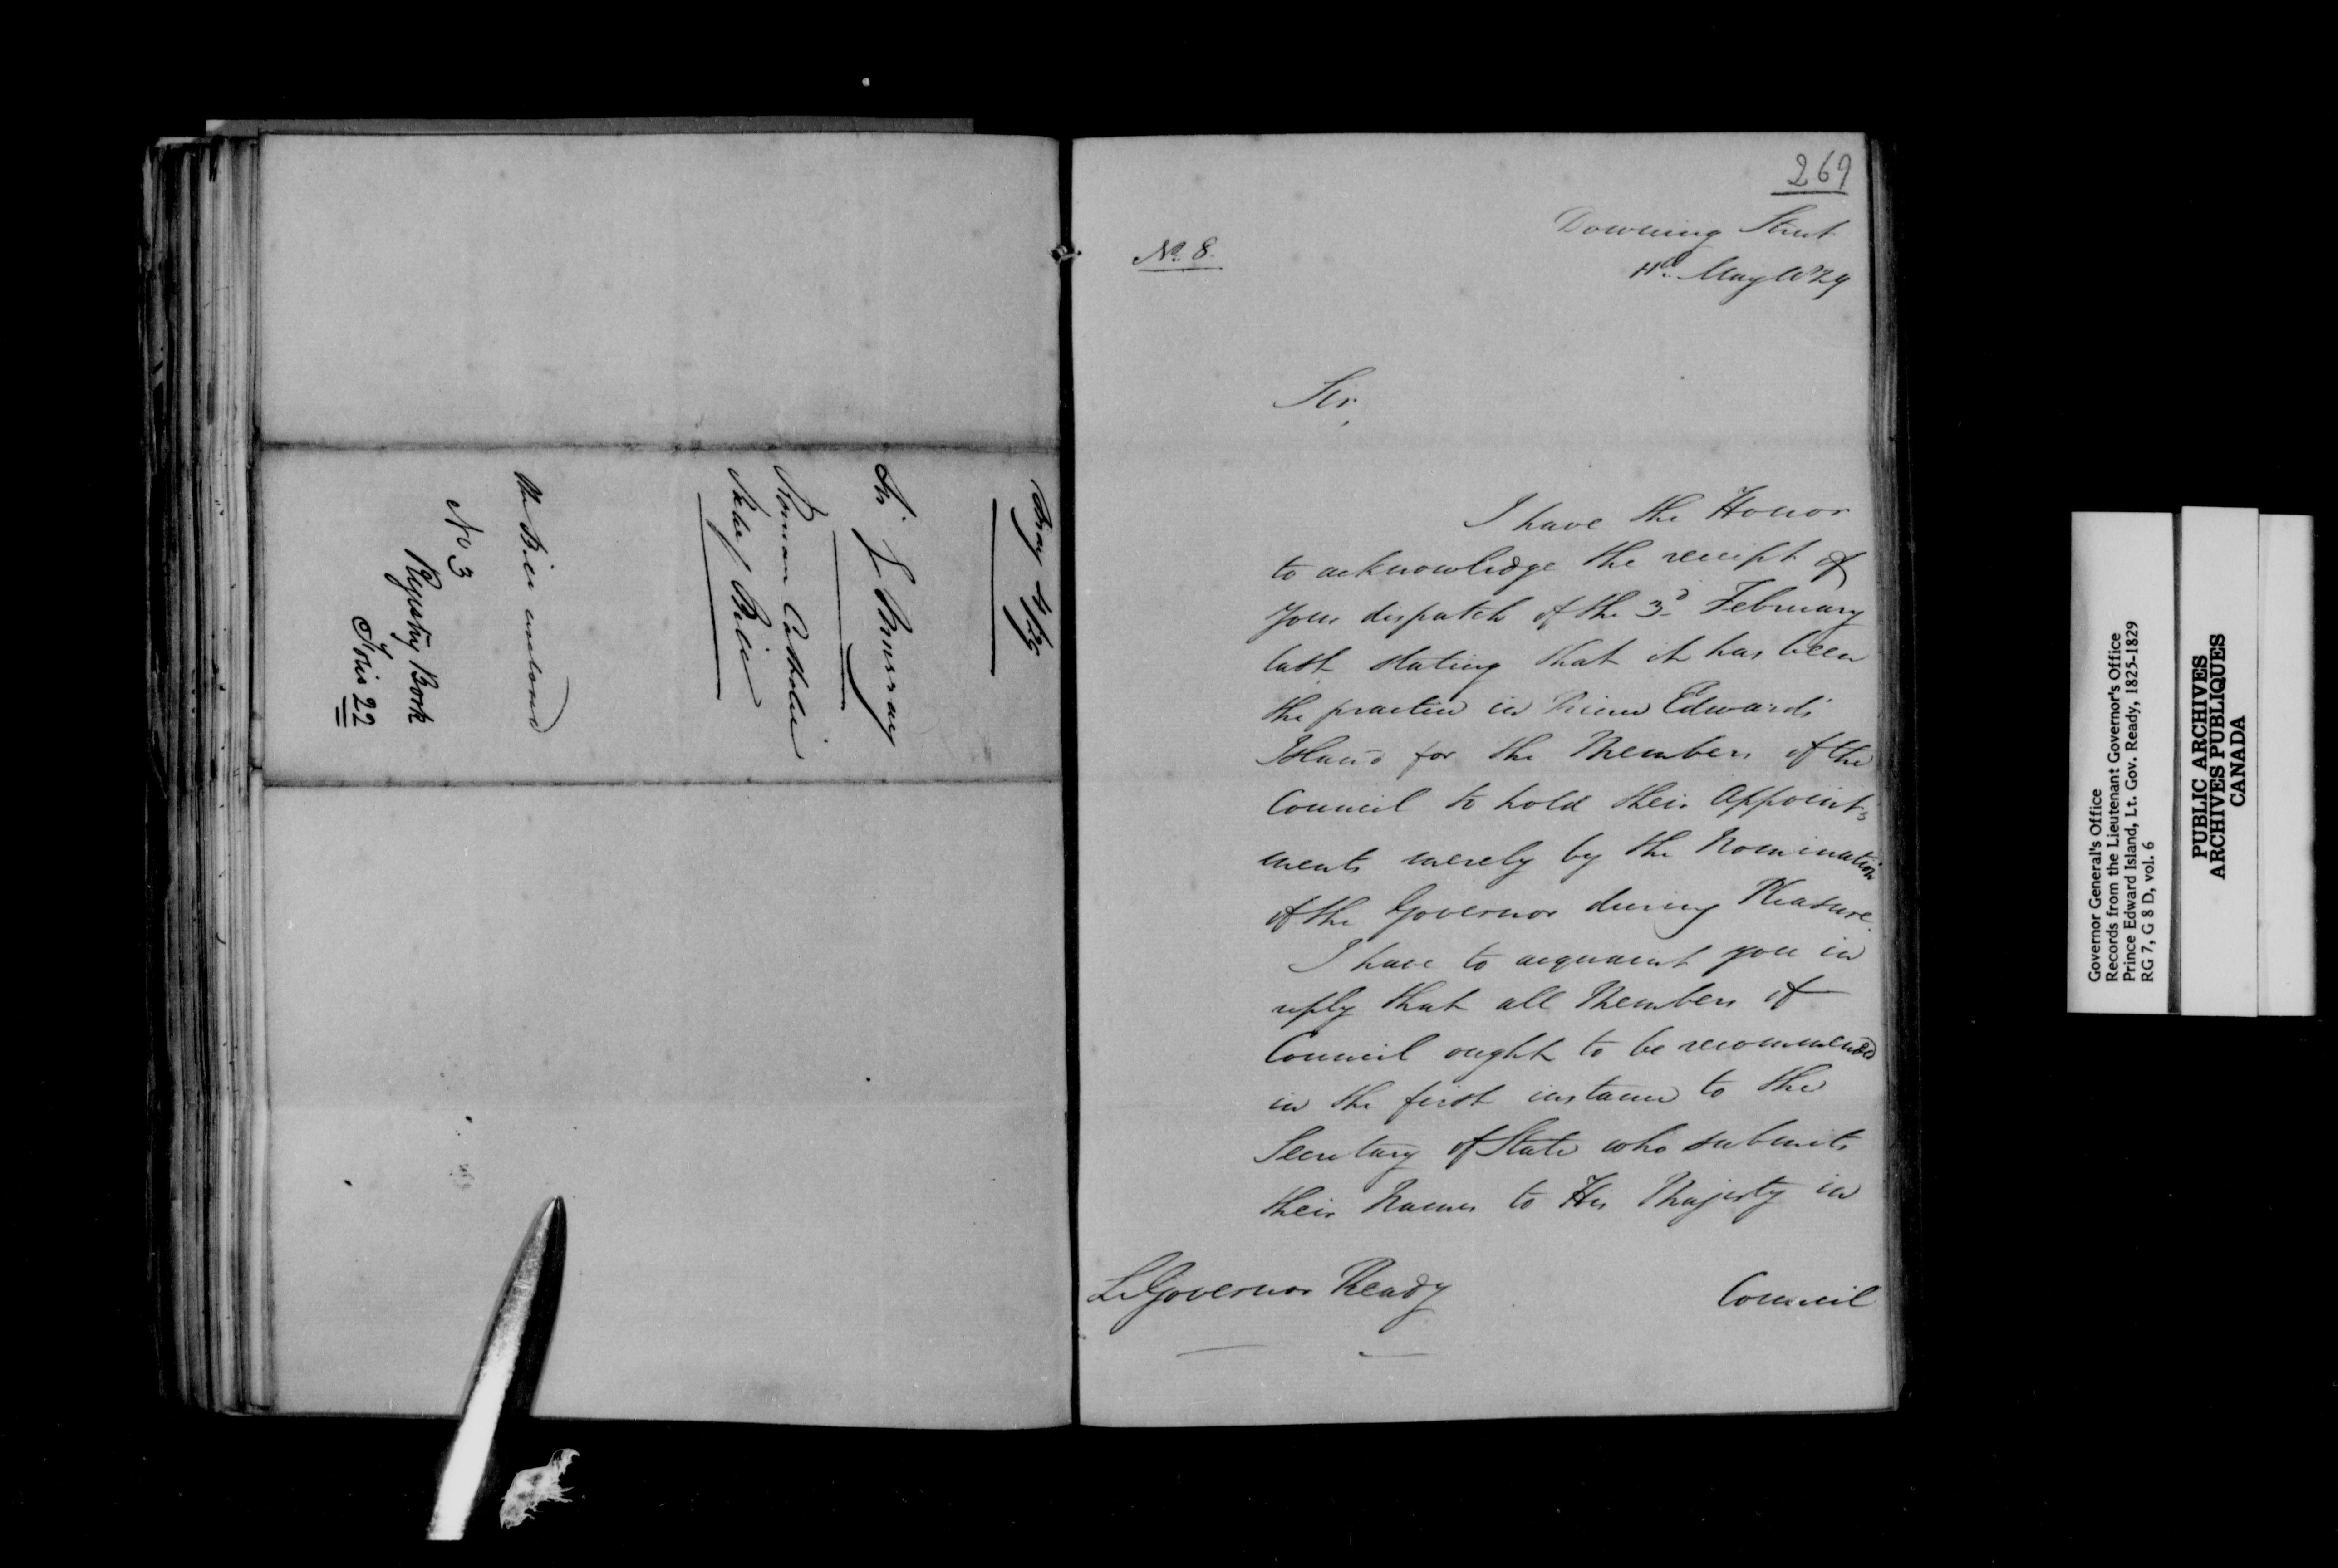 May 4/29
Sir G Murray
Roman Catholic
Relief Bill
The Bill enclosed
No 3
Registry Book
Folio 22
269
No. 8.
Downing Street
May 1829
Sir,
I have the Honor
to acknowledge the receipt of
your dispatch of the 3d February
last stating that it has been
the practice in Prince Edward's
Island for the Members of the
Council to hold their Appoint-
ments merely by the Nomination
of the Governor during Pleasure.
I have to acquaint you in
reply that all Members of
Council ought to be recommended
in the first instance to the
Secretary of State who submits
their Names to His Majesty in
Council
Lt Governor Ready
Governor General's Office
Records from the Lieutenant Governor's Office
Prince Edward Island, Lt. Gov. Ready, 1825-1829
RG 7, G 8 D, vol. 6
PUBLIC ARCHIVES
ARCHIVES PUBLIQUES
CANADA